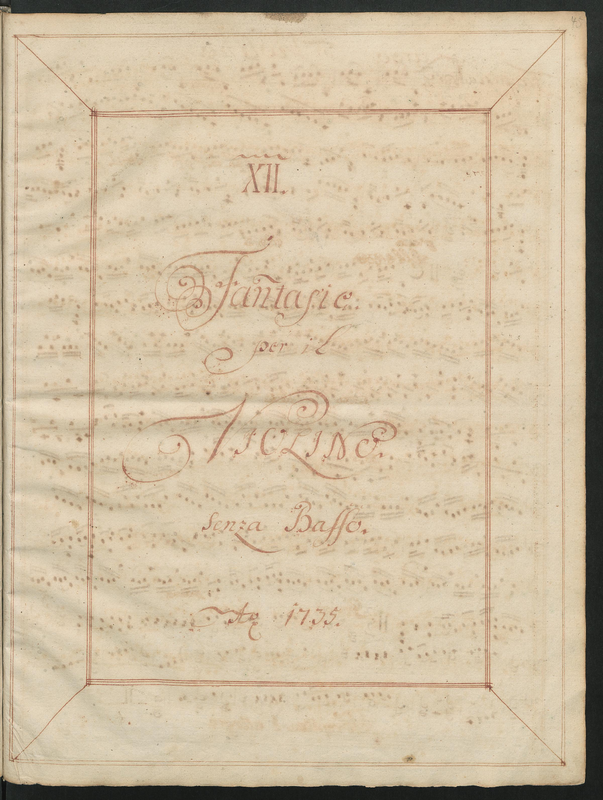 XII.
Fantasie
per il
VIOLINO.
Senza Basso.
Ao 1735.